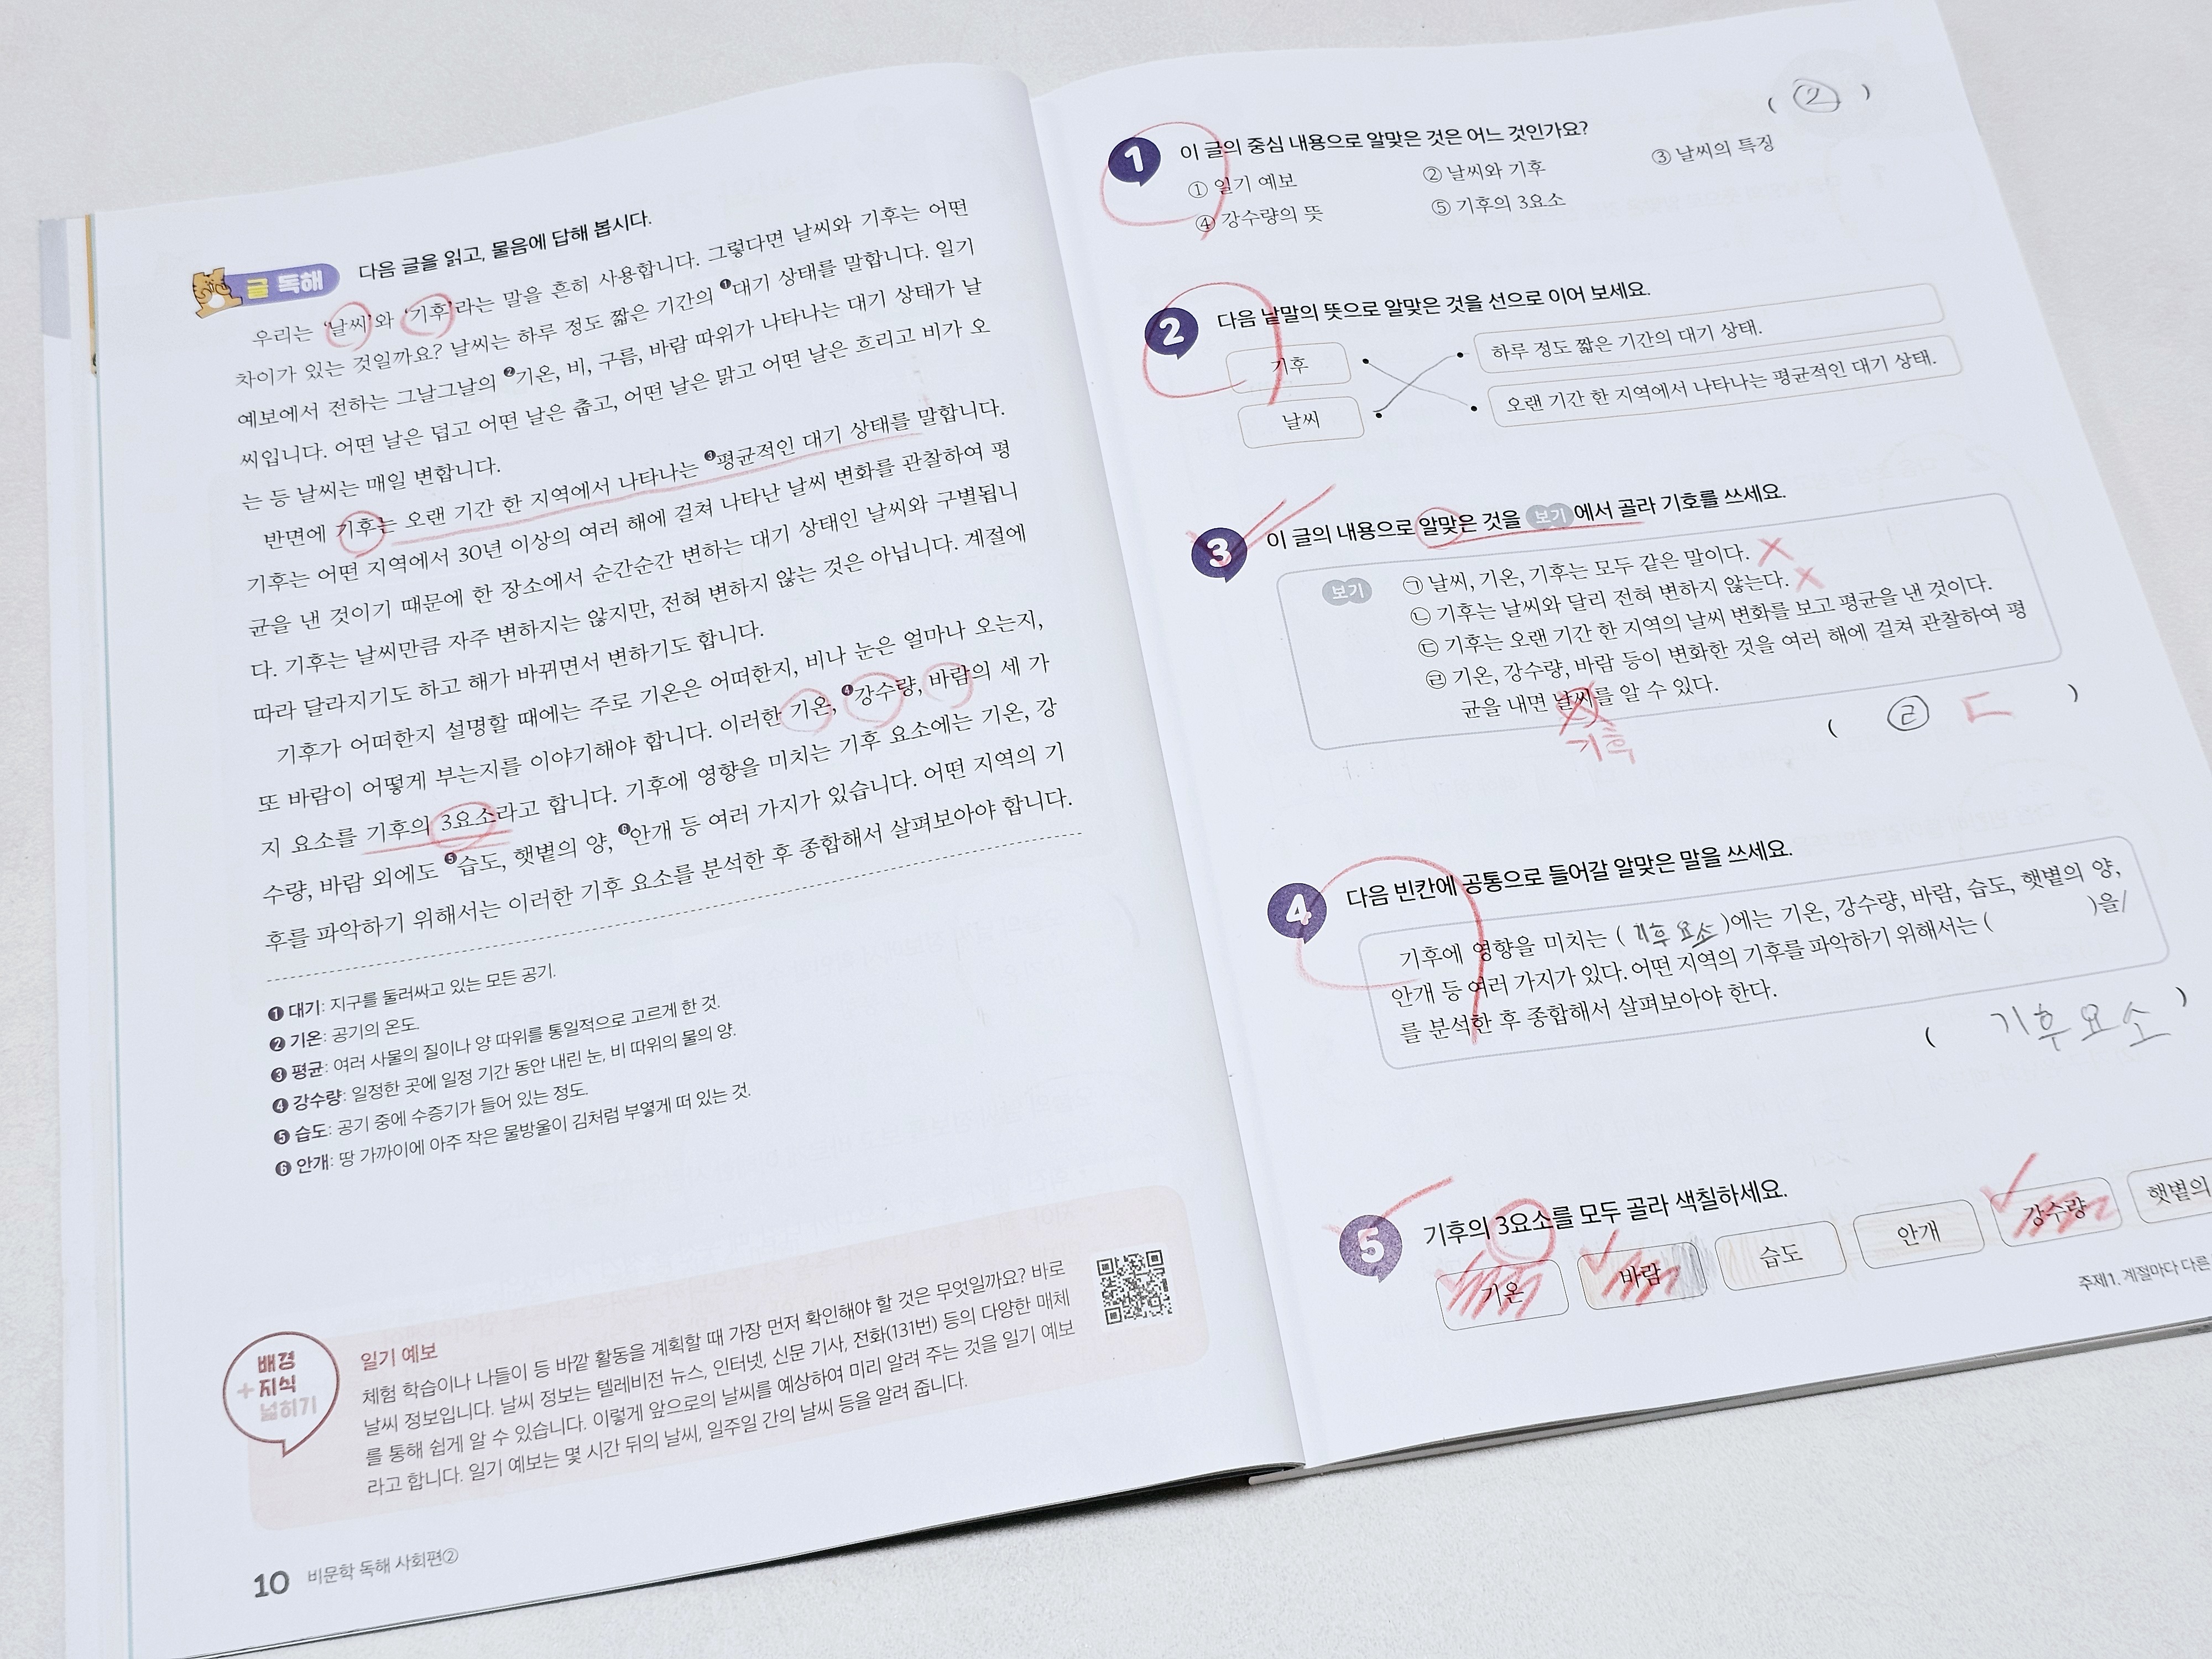 글 독해
다음 글을 읽고, 물음에 답해 봅시다.
우리는 '날씨'와 '기후'라는 말을 흔히 사용합니다. 그렇다면 날씨와 기후는 어떤
차이가 있는 것일까요? 날씨는 하루 정도 짧은 기간의 ❶대기 상태를 말합니다. 일기
예보에서 전하는 그날그날의 ❷기온, 비, 구름, 바람 따위가 나타나는 대기 상태가 날
씨입니다. 어떤 날은 덥고 어떤 날은 춥고, 어떤 날은 맑고 어떤 날은 흐리고 비가 오
는 등 날씨는 매일 변합니다.
반면에 기후는 오랜 기간 한 지역에서 나타나는 ❸평균적인 대기 상태를 말합니다.
기후는 어떤 지역에서 30년 이상의 여러 해에 걸쳐 나타난 날씨 변화를 관찰하여 평
균을 낸 것이기 때문에 한 장소에서 순간순간 변하는 대기 상태인 날씨와 구별됩니
다. 기후는 날씨만큼 자주 변하지는 않지만, 전혀 변하지 않는 것은 아닙니다. 계절에
따라 달라지기도 하고 해가 바뀌면서 변하기도 합니다.
기후가 어떠한지 설명할 때에는 주로 기온은 어떠한지, 비나 눈은 얼마나 오는지,
또 바람이 어떻게 부는지를 이야기해야 합니다. 이러한 기온, ❹강수량, 바람의 세 가
지 요소를 기후의 3요소라고 합니다. 기후에 영향을 미치는 기후 요소에는 기온, 강
수량, 바람 외에도 ❺습도, 햇볕의 양, ❻안개 등 여러 가지가 있습니다. 어떤 지역의 기
후를 파악하기 위해서는 이러한 기후 요소를 분석한 후 종합해서 살펴보아야 합니다.
❶ 대기: 지구를 둘러싸고 있는 모든 공기.
❷ 기온: 공기의 온도.
❸ 평균: 여러 사물의 질이나 양 따위를 통일적으로 고르게 한 것.
❹ 강수량: 일정한 곳에 일정 기간 동안 내린 눈, 비 따위의 물의 양.
❺ 습도: 공기 중에 수증기가 들어 있는 정도.
❻ 안개: 땅 가까이에 아주 작은 물방울이 김처럼 부옇게 떠 있는 것.
배경
+지식
넓히기
일기 예보
체험 학습이나 나들이 등 바깥 활동을 계획할 때 가장 먼저 확인해야 할 것은 무엇일까요? 바로
날씨 정보입니다. 날씨 정보는 텔레비전 뉴스, 인터넷, 신문 기사, 전화(131번) 등의 다양한 매체
를 통해 쉽게 알 수 있습니다. 이렇게 앞으로의 날씨를 예상하여 미리 알려 주는 것을 일기 예보
라고 합니다. 일기 예보는 몇 시간 뒤의 날씨, 일주일 간의 날씨 등을 알려 줍니다.
10 비문학 독해 사회편②
1 이 글의 중심 내용으로 알맞은 것은 어느 것인가요? ( ② )
① 일기 예보 ② 날씨와 기후 ③ 날씨의 특징
④ 강수량의 뜻 ⑤ 기후의 3요소
2 다음 낱말의 뜻으로 알맞은 것을 선으로 이어 보세요.
기후 • • 하루 정도 짧은 기간의 대기 상태.
날씨 • • 오랜 기간 한 지역에서 나타나는 평균적인 대기 상태.
3 이 글의 내용으로 알맞은 것을 보기 에서 골라 기호를 쓰세요.
보기
㉠ 날씨, 기온, 기후는 모두 같은 말이다. ×
㉡ 기후는 날씨와 달리 전혀 변하지 않는다. ×
㉢ 기후는 오랜 기간 한 지역의 날씨 변화를 보고 평균을 낸 것이다.
㉣ 기온, 강수량, 바람 등이 변화한 것을 여러 해에 걸쳐 관찰하여 평
균을 내면 날씨를 알 수 있다.
기후
( ㉣ ㄷ )
4 다음 빈칸에 공통으로 들어갈 알맞은 말을 쓰세요.
기후에 영향을 미치는 ( 기후 요소 )에는 기온, 강수량, 바람, 습도, 햇볕의 양,
안개 등 여러 가지가 있다. 어떤 지역의 기후를 파악하기 위해서는 ( )을/
를 분석한 후 종합해서 살펴보아야 한다.
( 기후 요소 )
5 기후의 3요소를 모두 골라 색칠하세요.
기온 바람 습도 안개 강수량 햇볕의
주제1. 계절마다 다른